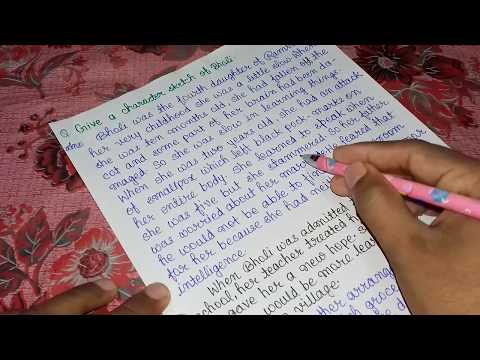 Q Give a character sketch of Bholi
Ans Bholi was the fourth daughter of Raml
her very childhood she was a little slow. When
she was ten months old she had fallen off the
cat and some part of her brain had been da-
maged. So she was slow in learning things.
When she was two years old, she had an attack
of smallpox which left black pock-marks on
her entire body. she learned to speak when
she was five but she stammered. So her father
was worried about her feared that
he would not be able to
for her because she had
intelligence.
When Bholi was admitted
school, her teacher treated h
gave her a new hope. s
would be more lear
village.
ther arrang
h groce